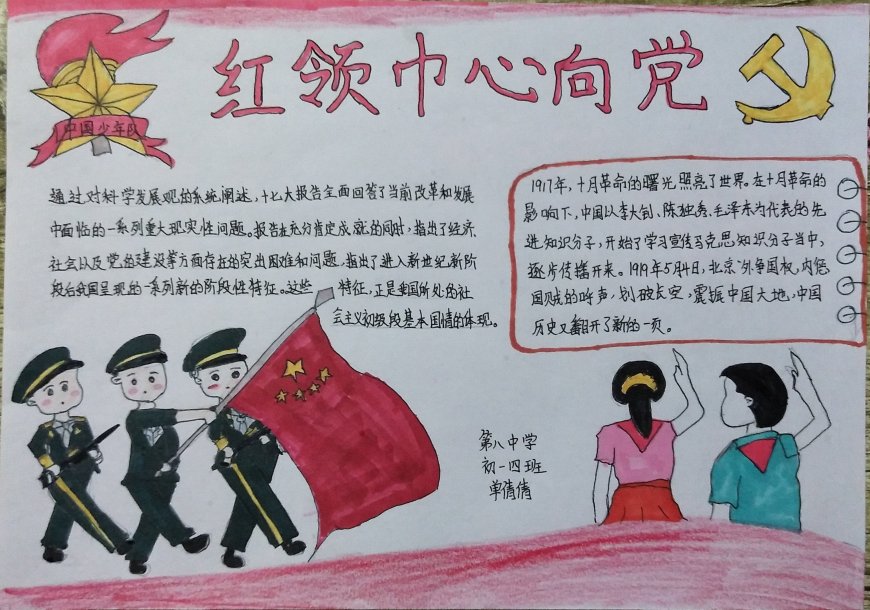 红领巾心向党
中国少年队
通过对科学发展观的系统阐述，十七大报告全面回答了当前改革和发展
中面临的一系列重大现实性问题。报告在充分肯定成就的同时，指出了经济、
社会以及党的建设等方面存在的突出困难和问题，指出了进入新世纪新阶
段后我国呈现的一系列新的阶段性特征。这些 特征，正是我国所处的社
会主义初级段基本国情的体现。
1917年，十月革命的曙光照亮了世界。在十月革命的
影响下，中国以李大钊、陈独秀、毛泽东为代表的先
进知识分子，开始了学习宣传马克思知识分子当中，
逐步传播开来。1919年5月4日，北京"外争国权，内惩
国贼的呼声，划破长空，震撼中国大地，中国
历史又翻开了新的一页。
第八中学
初一四班
单倩倩